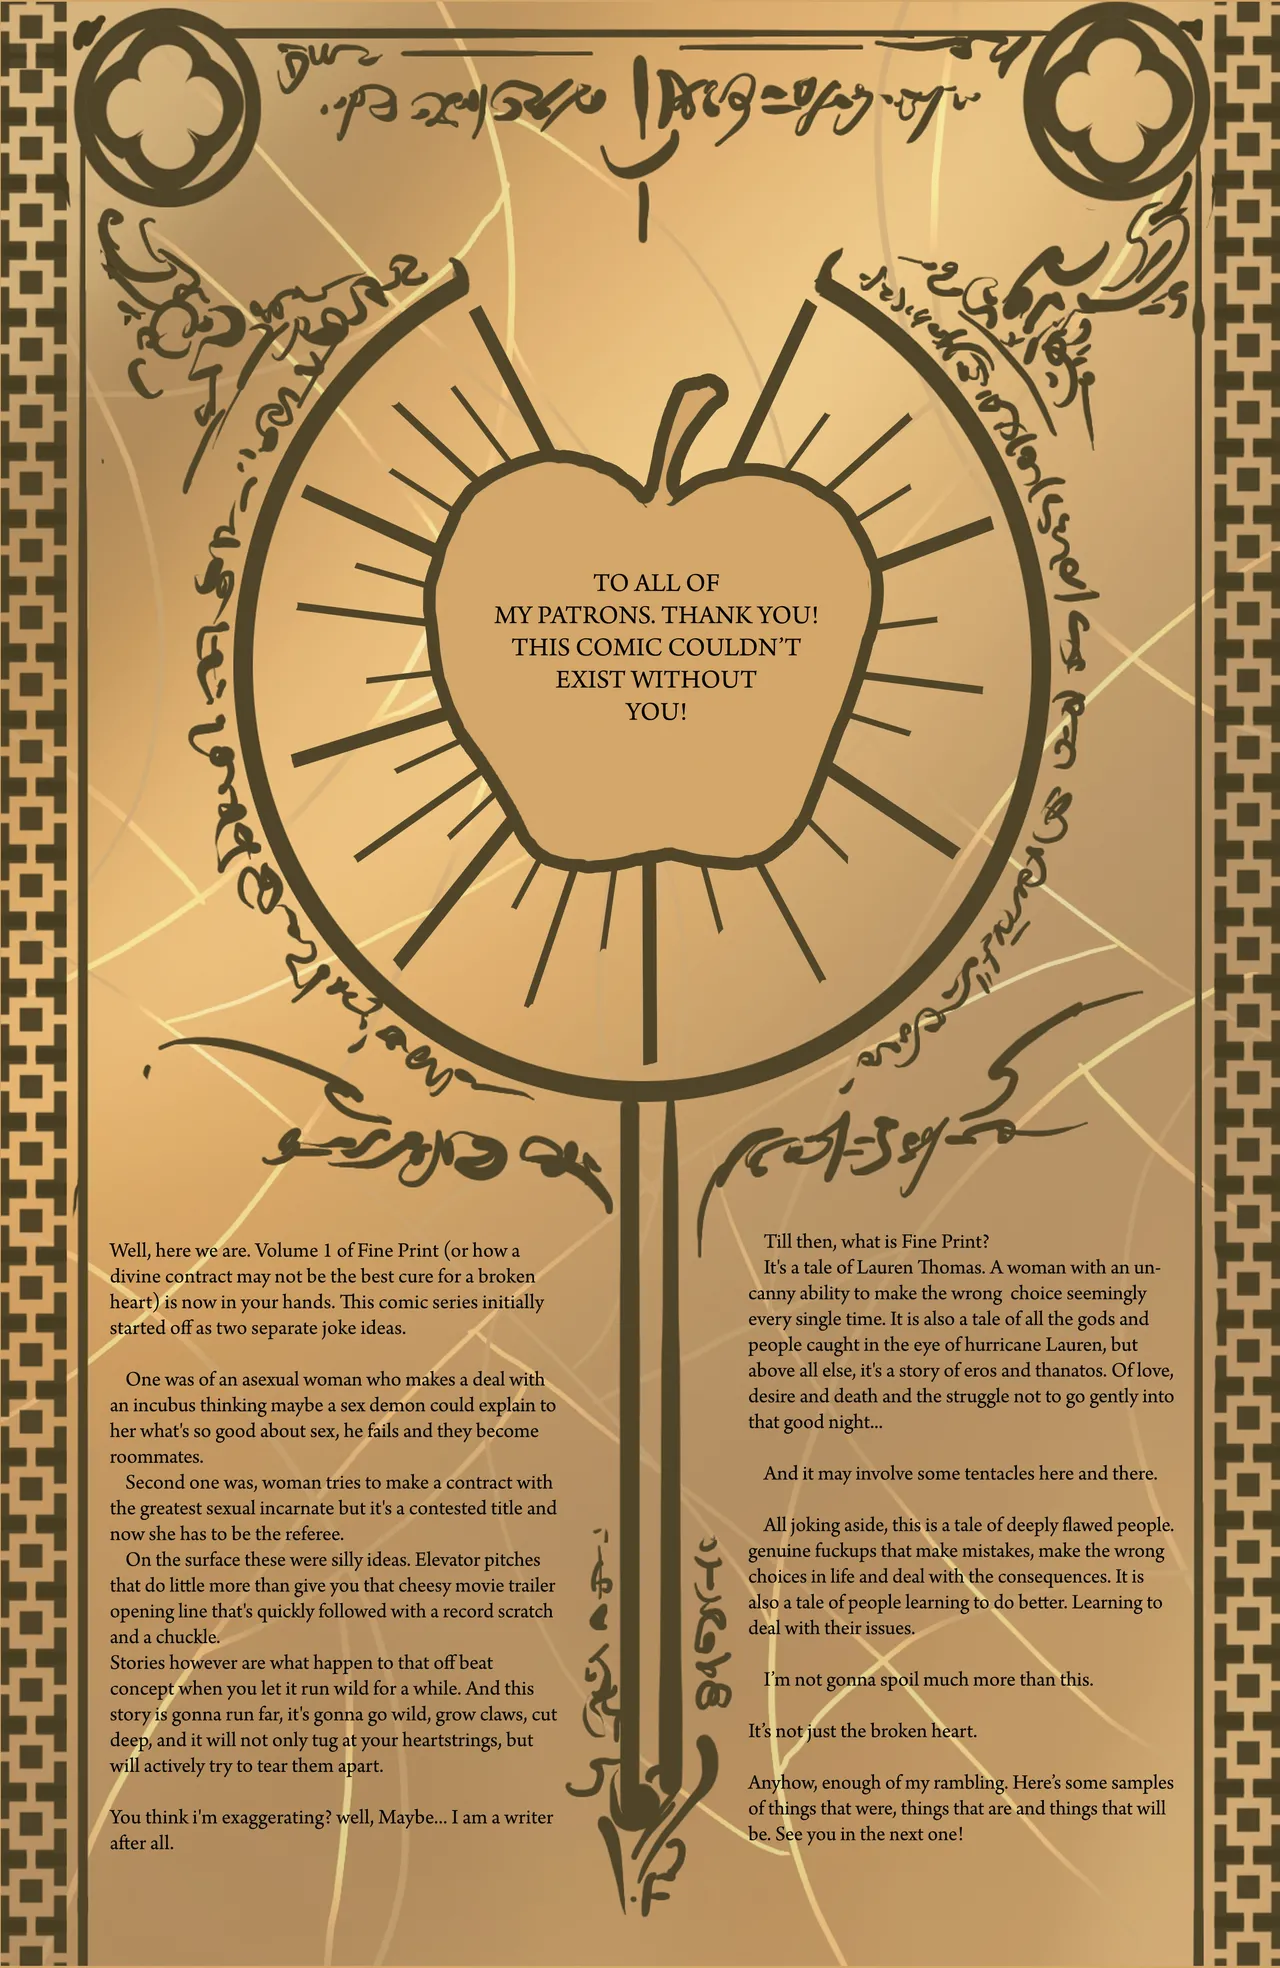 TO ALL OF
MY PATRONS. THANK YOU!
THIS COMIC COULDN'T
EXIST WITHOUT
YOU!
Well, here we are. Volume 1 of Fine Print (or how a
divine contract may not be the best cure for a broken
heart) is now in your hands. This comic series initially
started off as two separate joke ideas.
One was of an asexual woman who makes a deal with
an incubus thinking maybe a sex demon could explain to
her what's so good about sex, he fails and they become
roommates.
Second one was, woman tries to make a contract with
the greatest sexual incarnate but it's a contested title and
now she has to be the referee.
On the surface these were silly ideas. Elevator pitches
that do little more than give you that cheesy movie trailer
opening line that's quickly followed with a record scratch
and a chuckle.
Stories however are what happen to that off beat
concept when you let it run wild for a while. And this
story is gonna run far, it's gonna go wild, grow claws, cut
deep, and it will not only tug at your heartstrings, but
will actively try to tear them apart.
You think i'm exaggerating? well, Maybe... I am a writer
after all.
Till then, what is Fine Print?
It's a tale of Lauren Thomas. A woman with an un-
canny ability to make the wrong choice seemingly
every single time. It is also a tale of all the gods and
people caught in the eye of hurricane Lauren, but
above all else, it's a story of eros and thanatos. Of love,
desire and death and the struggle not to go gently into
that good night...
And it may involve some tentacles here and there.
All joking aside, this is a tale of deeply flawed people.
genuine fuckups that make mistakes, make the wrong
choices in life and deal with the consequences. It is
also a tale of people learning to do better. Learning to
deal with their issues.
I'm not gonna spoil much more than this.
It's not just the broken heart.
Anyhow, enough of my rambling. Here's some samples
of things that were, things that are and things that will
be. See you in the next one!